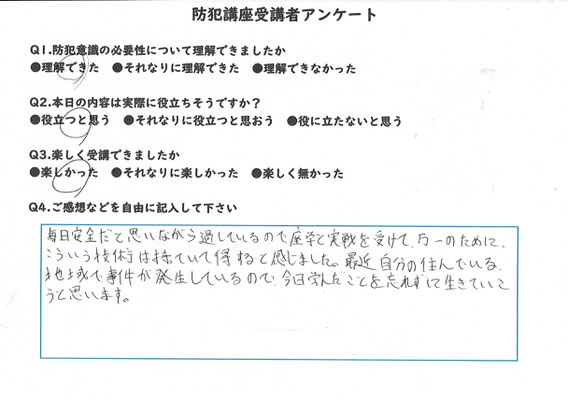 防犯講座受講者アンケート
Q1.防犯意識の必要性について理解できましたか
●理解できた ●それなりに理解できた ●理解できなかった
Q2.本日の内容は実際に役立ちそうですか？
●役立つと思う ●それなりに役立つと思おう ●役に立たないと思う
Q3.楽しく受講できましたか
●楽しかった ●それなりに楽しかった ●楽しく無かった
Q4.ご感想などを自由に記入して下さい
毎日安全だと思いながら過しているので座学と実戦を受けて、万一のために、
こういう技術は持ていて得すると感じました。最近自分の住んでいる
地域で事件が発生しているので、今日学んだことを忘れずに生きていこ
うと思います。